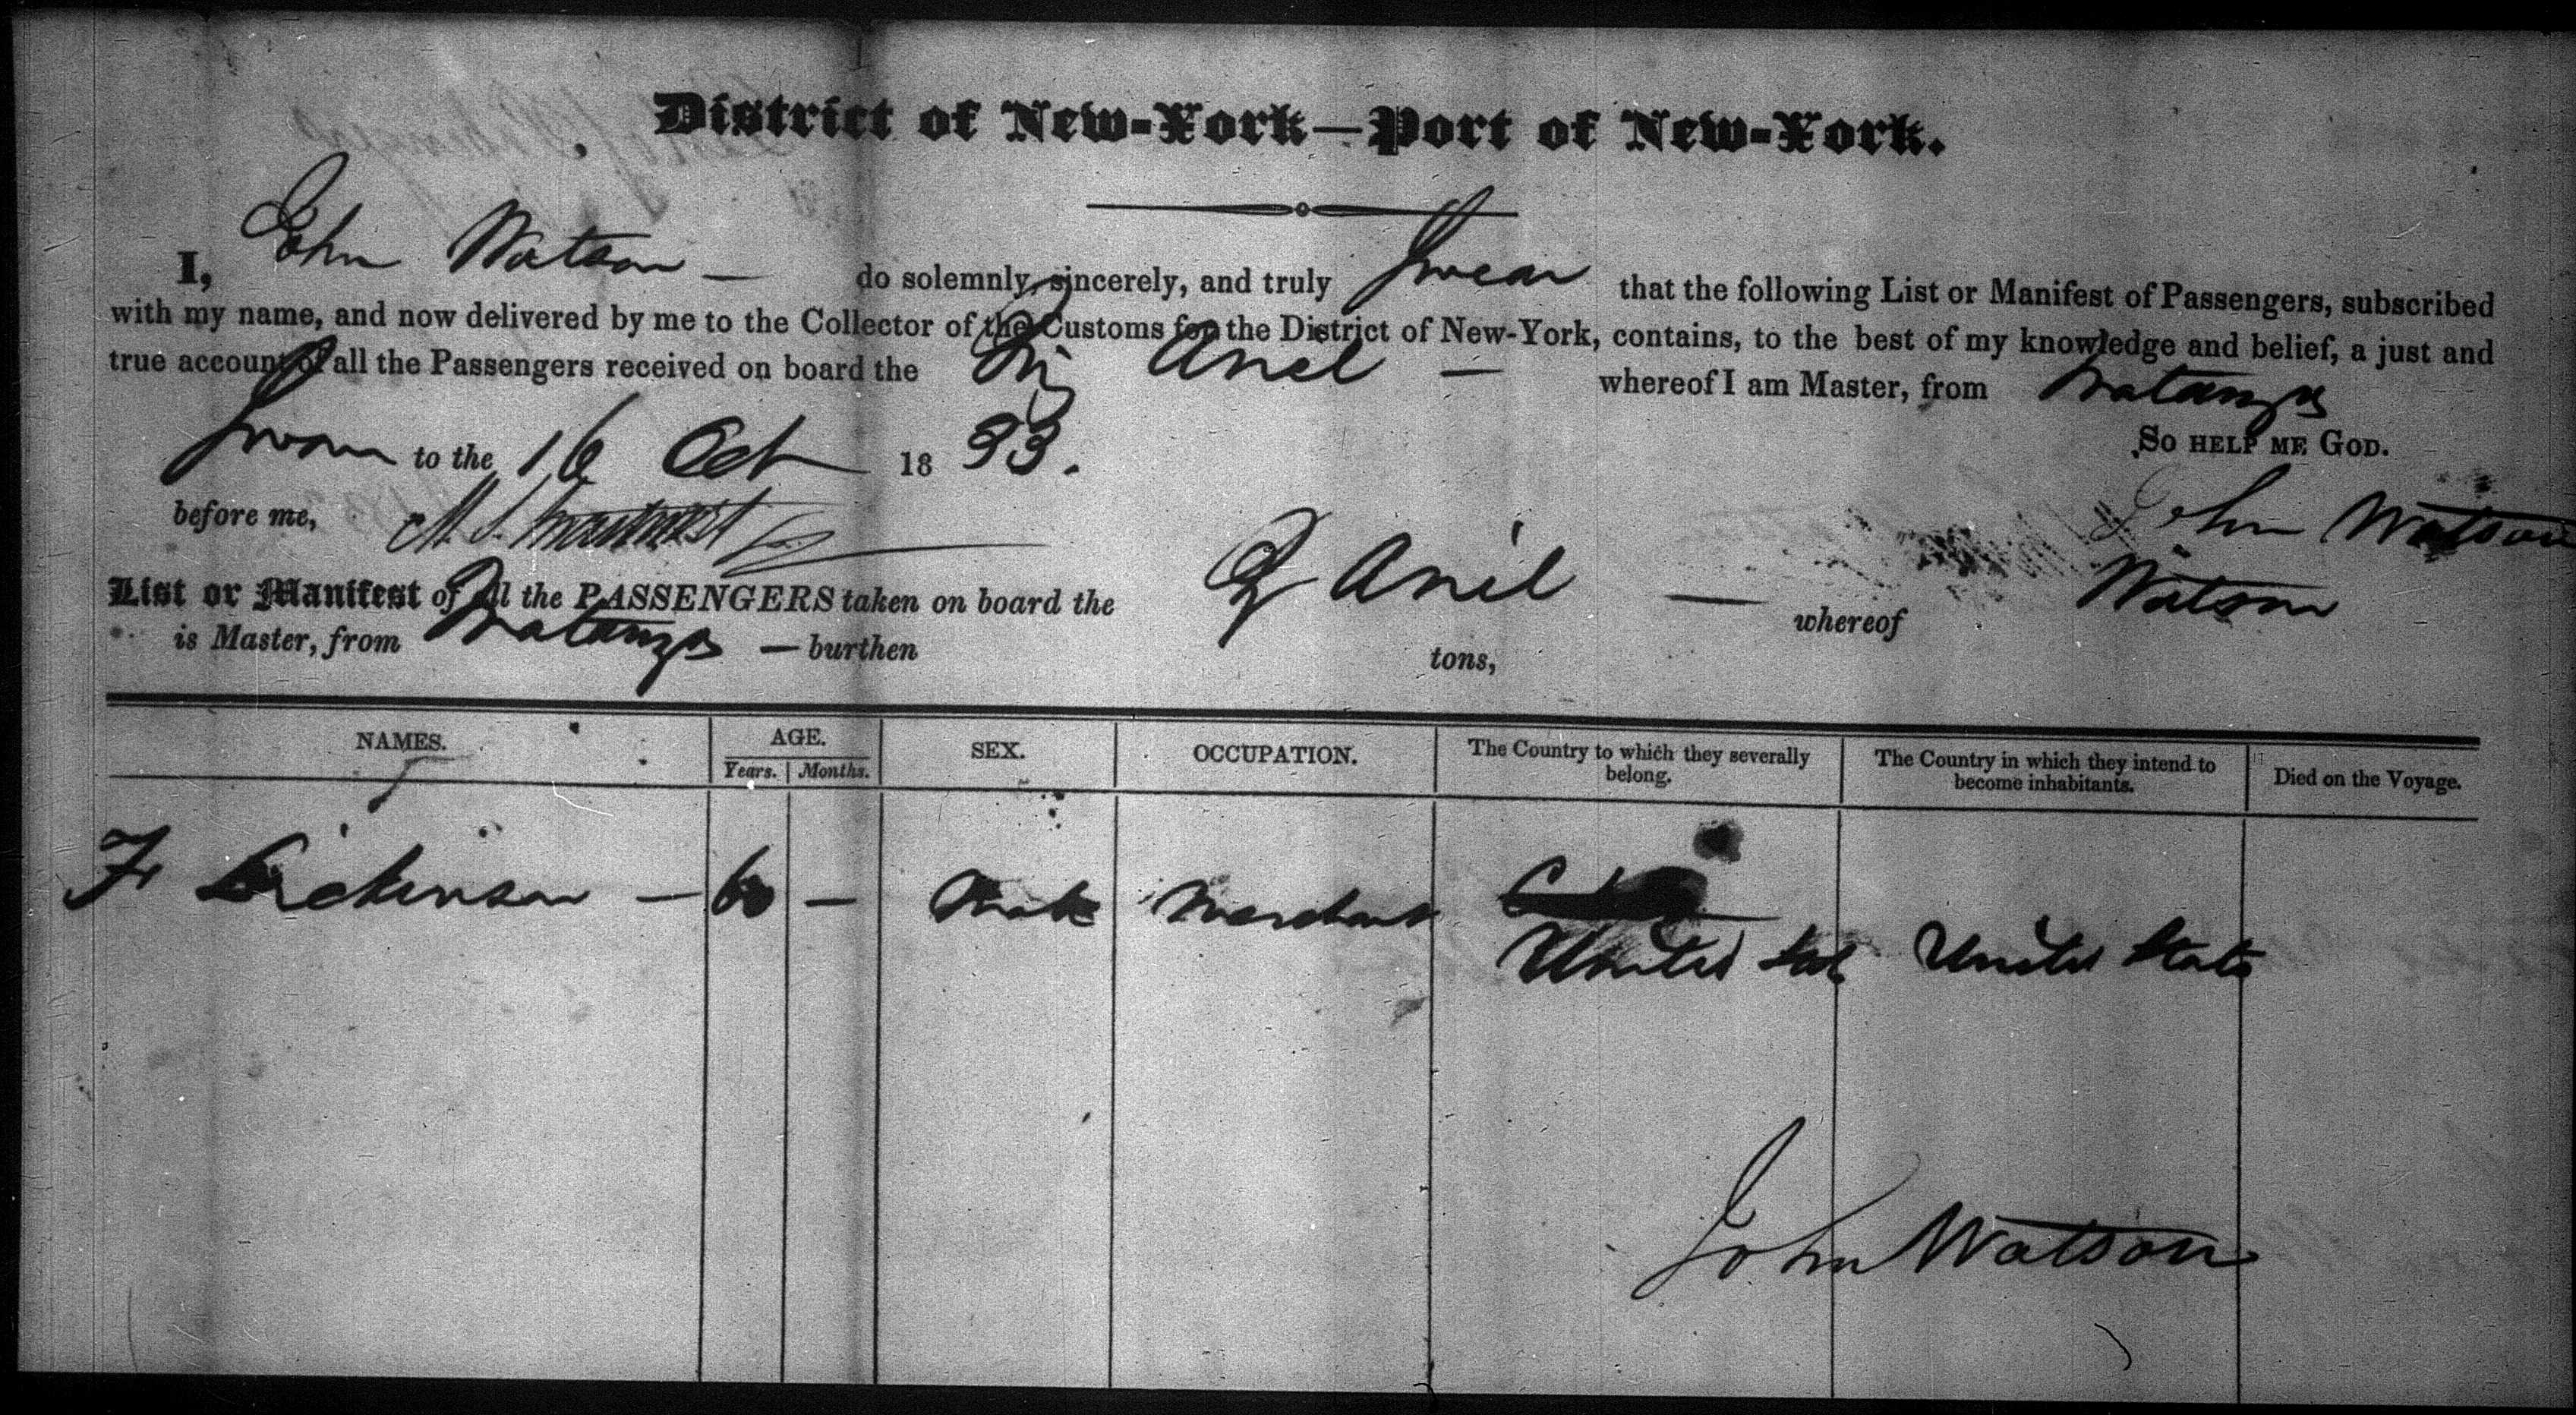 District of New-York—Port of New-York.
I, John Watson — do solemnly, sincerely, and truly Swear that the following List or Manifest of Passengers, subscribed
with my name, and now delivered by me to the Collector of the Customs for the District of New-York, contains, to the best of my knowledge and belief, a just and
true account of all the Passengers received on board the Anel — whereof I am Master, from Matanzas
Sworn to the 16 Oct 1833. So HELP ME GOD.
before me, John Watson
List or Manifest of all the PASSENGERS taken on board the Anil — whereof Watson
is Master, from Matanzas — burthen tons,
NAMES. AGE. SEX. OCCUPATION. The Country to which they severally belong. The Country in which they intend to become inhabitants. Died on the Voyage.
Years. Months.
F Dickinson — 60 — Male Merchant
United Stat United States
John Watson